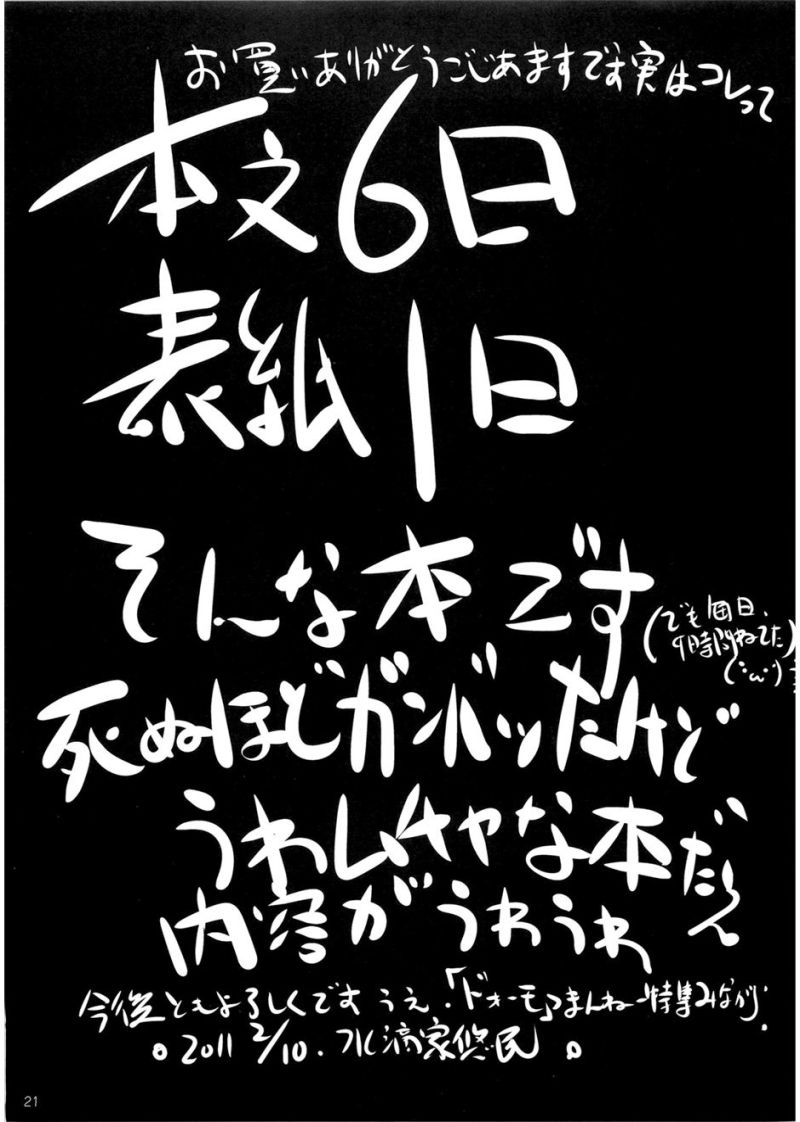 お買いありがとうごじあますです実はコレって
本文6日
表紙1日
そんな本です
(でも毎日、
9時間ねてた)
(･ω･)
死ぬほどガンバッたけど
うわムチャな本だ
内容がうわうわ
今後ともよろしくです うえ.「ドォーモ」つまんねー特集みながら.
。2011 2/10. 水滴家悠民 。
21